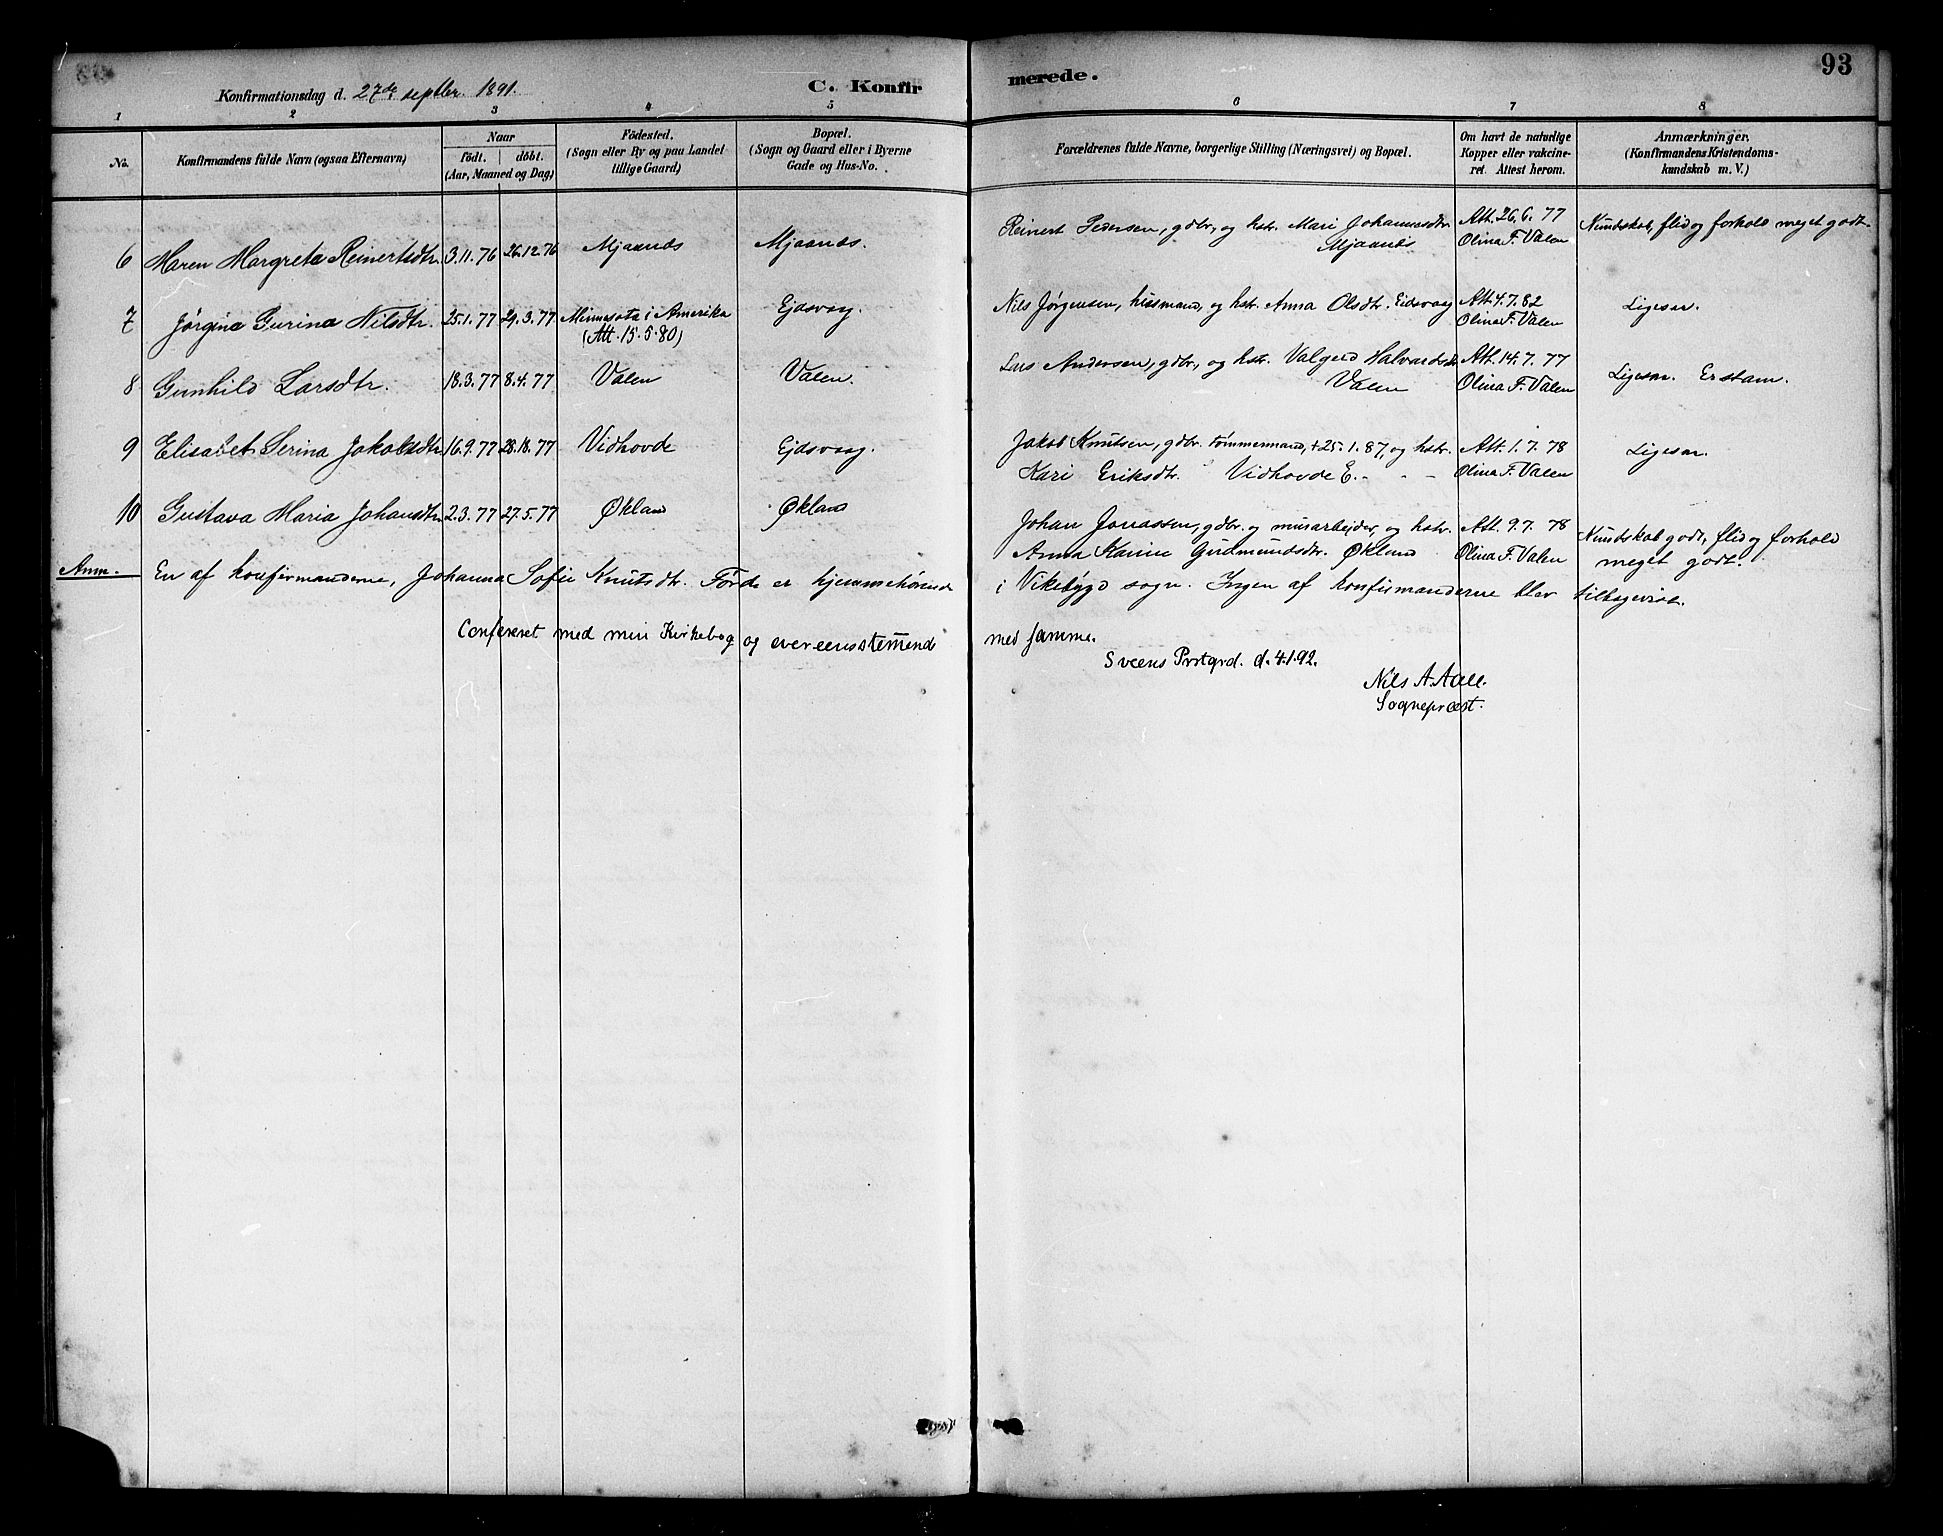 93
Konfirmationsdag d. 27de septber. 1891.
C. Konfir
merede.
1 2 3 4 5 6 7 8
No.
Konfirmandens fulde Navn (ogsaa Efternavn)
Naar
födt. döbt.
(Aar, Maaned og Dag)
Födested.
(Sogn eller By og paa Landet
tillige Gaard)
Bopæl.
(Sogn og Gaard eller i Byerne
Gade og Hus-No.
Forældrenes fulde Navne, borgerlige Stilling (Næringsvei) og Bopæl.
Om havt de naturlige
Kopper eller vakcine-
ret. Attest herom.
Anmærkninger.
(Konfirmandens Kristendoms-
kundskab m. V.)
6 Maren Margreta Reinertsdtr. 3.11.76 26.12.76 Mjaanæs Mjaanæs.
Reinert Pedersen, gdbr., og hstr. Mari Johannesdtr.
Mjaanæs
Att. 26.6.77
Olina F. Valen
Kundskab, flid og forhold meget godt.
7 Jørgina Gurina Nilsdtr. 25.1.77 29.3.77 Minnesota i Amerika
(Att. 15.5.80)
Ejdsvaag.
Nils Jørgensen, husmand, og hstr. Anna Olsdtr. Eidsvaag
Att. 4.7.82
Olina F. Valen
Ligesaa.
8 Gunhild Larsdtr. 18.3.77 8.4.77 Valen Valen.
Lars Andersen, gdbr., og hstr. Valgerd Halvardsdtr.
Valen
Att. 14.7.77
Olina F. Valen
Ligesaa. Er stam.
9 Elisabet Serina Jakobsdtr. 16.9.77 28.10.77 Vidhovde Ejdsvaag.
Jakob Knutsen, gdbr. tømmermand, +25.1.87, og hstr.
Kari Eriksdtr. Vidhovde E. - - -
Att. 1.7.78
Olina F. Valen
Ligesaa.
10 Gustava Maria Johansdtr. 2.3.77 27.5.77 Økland Økland
Johan Jonassen, gdbr. og murarbejder, og hstr.
Anna Karine Gudmundsdtr. Økland
Att. 9.7.78
Olina F. Valen
Kundskab godt, flid og forhold
meget godt.
Anm. En af konfirmanderne, Johanna Sofie Knutsdtr. Førde er hjemmehørende
i Vikebygd sogn. Ingen af konfirmanderne blev tilbagevist.
Confereret med min Kirkebog og overeensstemmend
med samme.
Sveens Prstgrd. d. 4.1.92.
Nils A. Aall.
Sognepræst.